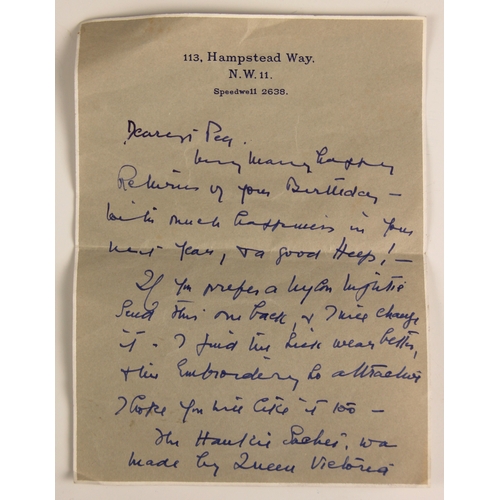 113, Hampstead Way.
N.W. 11.
Speedwell 2638.
Dearest Peg.
Very Many happy
Returns of your Birthday –
with much happiness in your
next year, & a good Heep! –
If you prefer a Nylon Nightie
Send this one back, & I will change
it – I find the Silk wear better,
& the Embroidery so attractive
I hope you will like it too –
The Hankie Sachet, was
made by Queen Victoria